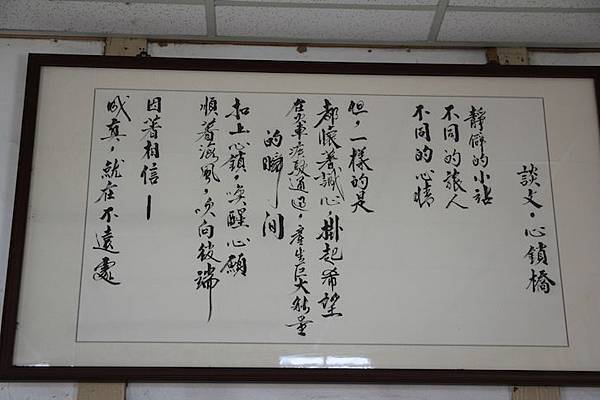 談文。心鎖橋
靜僻的小站
不同的旅人
不同的心情
但，一樣的是
都懷著誠心，掛起希望
在火車疾駛通過，產生巨大能量
的瞬間
扣上心鎖，喚醒心願
順著海風，吹向彼端
因著相信—
成真，就在不遠處